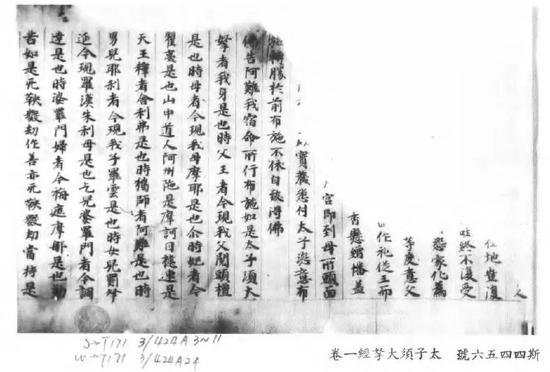 人
地豈復
終不復受
惡家化爲
等慶意父
作礼從王而
香懸繒幡蓋
宮即到母所頭面
以寶藏悉付太子恣意布
施轉勝於前布施不休自致得佛
佛告阿難我宿命所行布施如是太子須大
拏者我身是也時父王者今現我父閱頭檀
是也時母者今現我母摩耶是也尒時妃者今
瞿夷是也山中道人阿州陁是摩訶目揵連是
天王釋者舍利弗是也時獵師者阿難是也時
男兒耶利者今現我子羅雲是也時女兒罽拏
延今現羅漢朱利母是也乞兒婆羅門者今調
達是也時婆羅門婦者今栴遮摩郍是也勤
苦如是无鞅數劫作善亦无鞅數劫當持是
斯四四五六號 太子須大拏經一卷
S→T171 3/424A3~11
T171 3/424A24